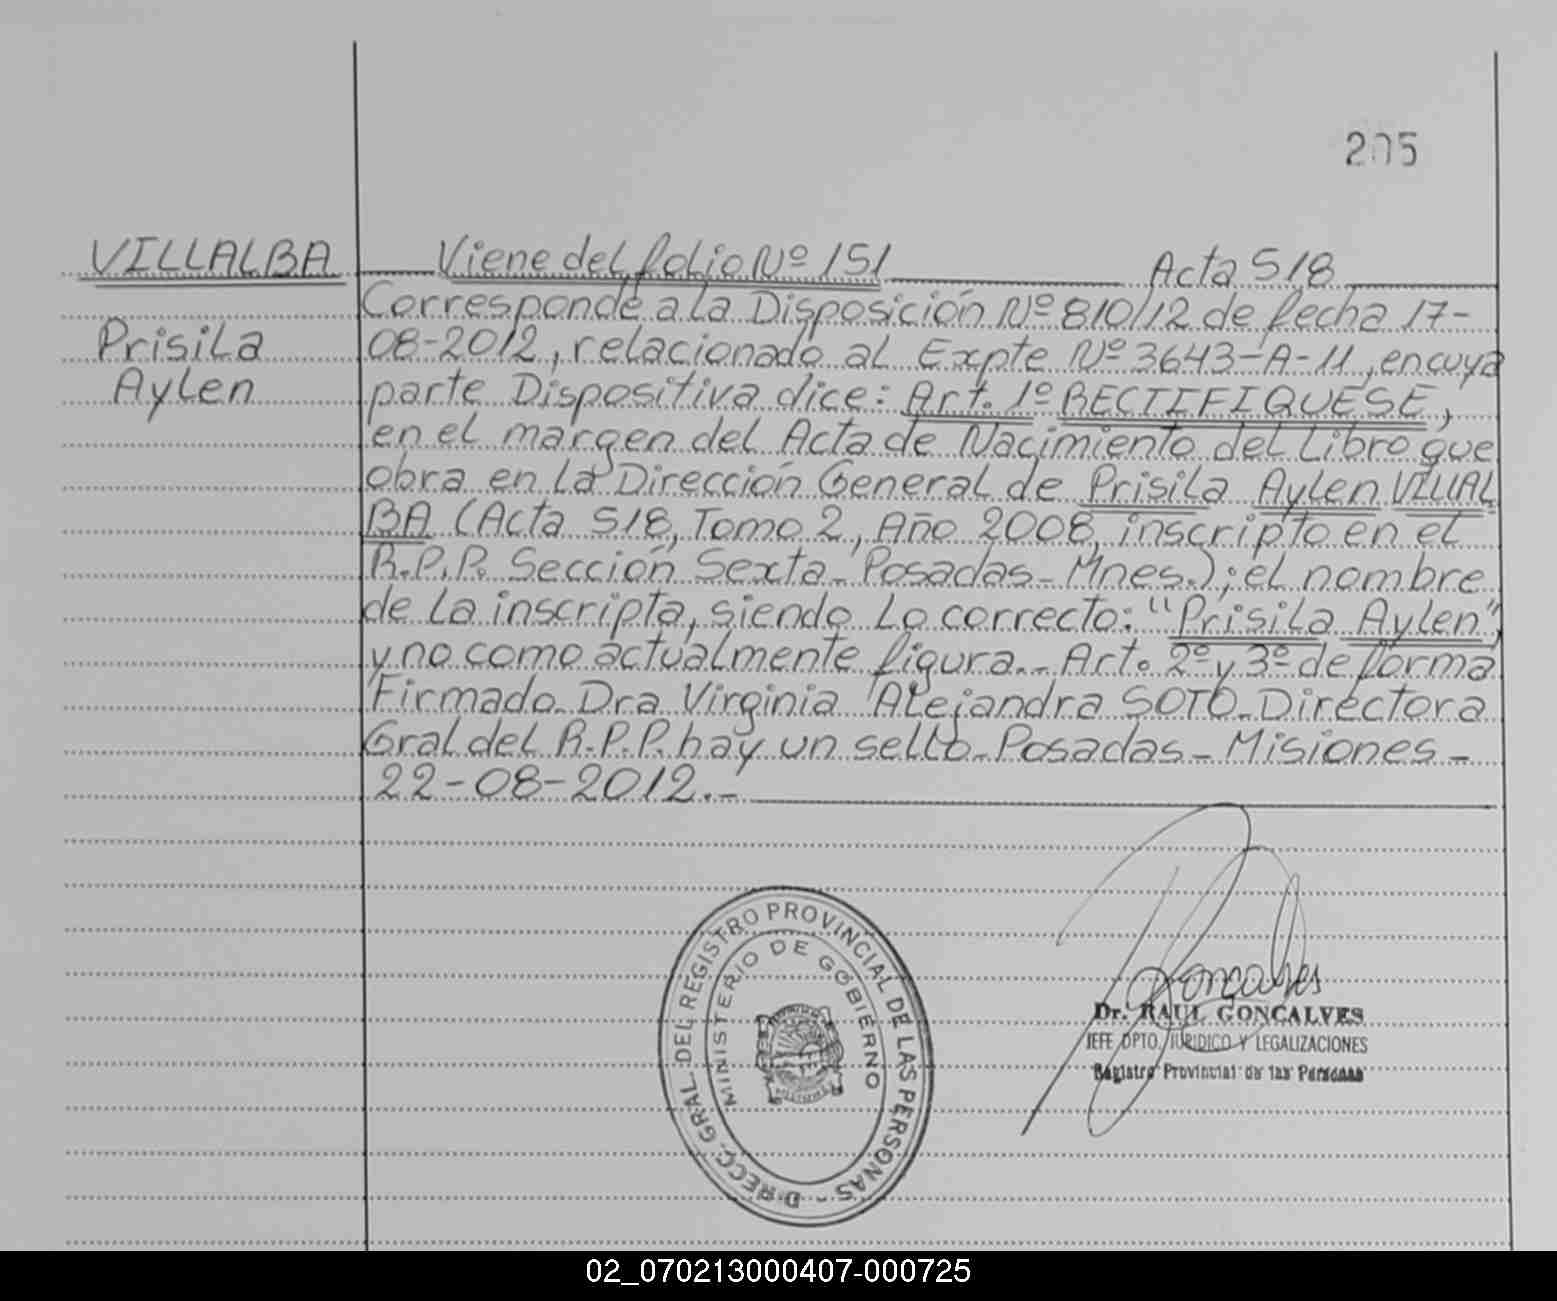 205
VILLALBA
Prisila
Aylen
Viene del folio Nº 151 Acta 518
Corresponde a la Disposición Nº 810/12 de fecha 17-
08-2012, relacionado al Expte Nº 3643-A-11, en cuya
parte Dispositiva dice: Art. 1º RECTIFIQUESE,
en el margen del Acta de Nacimiento del Libro que
obra en la Dirección General de Prisila Aylen VILLAL
BA (Acta 518, Tomo 2, Año 2008, inscripto en el
R.P.P. Sección Sexta - Posadas - Mnes.); el nombre
de la inscripta, siendo lo correcto: "Prisila Aylen",
y no como actualmente figura.- Art. 2º y 3º de forma
Firmado. Dra Virginia Alejandra SOTO - Directora
Gral del R.P.P. hay un sello - Posadas - Misiones -
22-08-2012.-
DIRECC. GRAL. DEL REGISTRO PROVINCIAL DE LAS PERSONAS -
MINISTERIO DE GOBIERNO
Goncalves
Dr. RAUL GONCALVES
JEFE DPTO. JURIDICO Y LEGALIZACIONES
Registro Provincial de las Personas
02_070213000407-000725